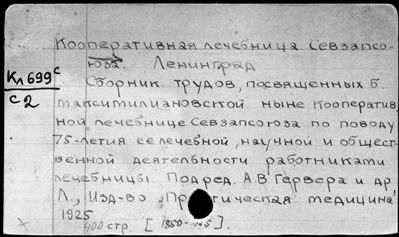 Кооперативная лечебница Севзапсо-
юза. Ленинград
Кл 699 с
с 2
Сборник трудов, посвященных б.
Максимилиановской ныне кооператив
ной лечебнице Севзапсоюза по поводу
75-летия ее лечебной, научной и общест-
венной деятельности работниками
лечебницы. Подред. А.В. Гервера и др.
Л., Изд-во "Практическая медицина"
1925
400 стр. [1850-1925].